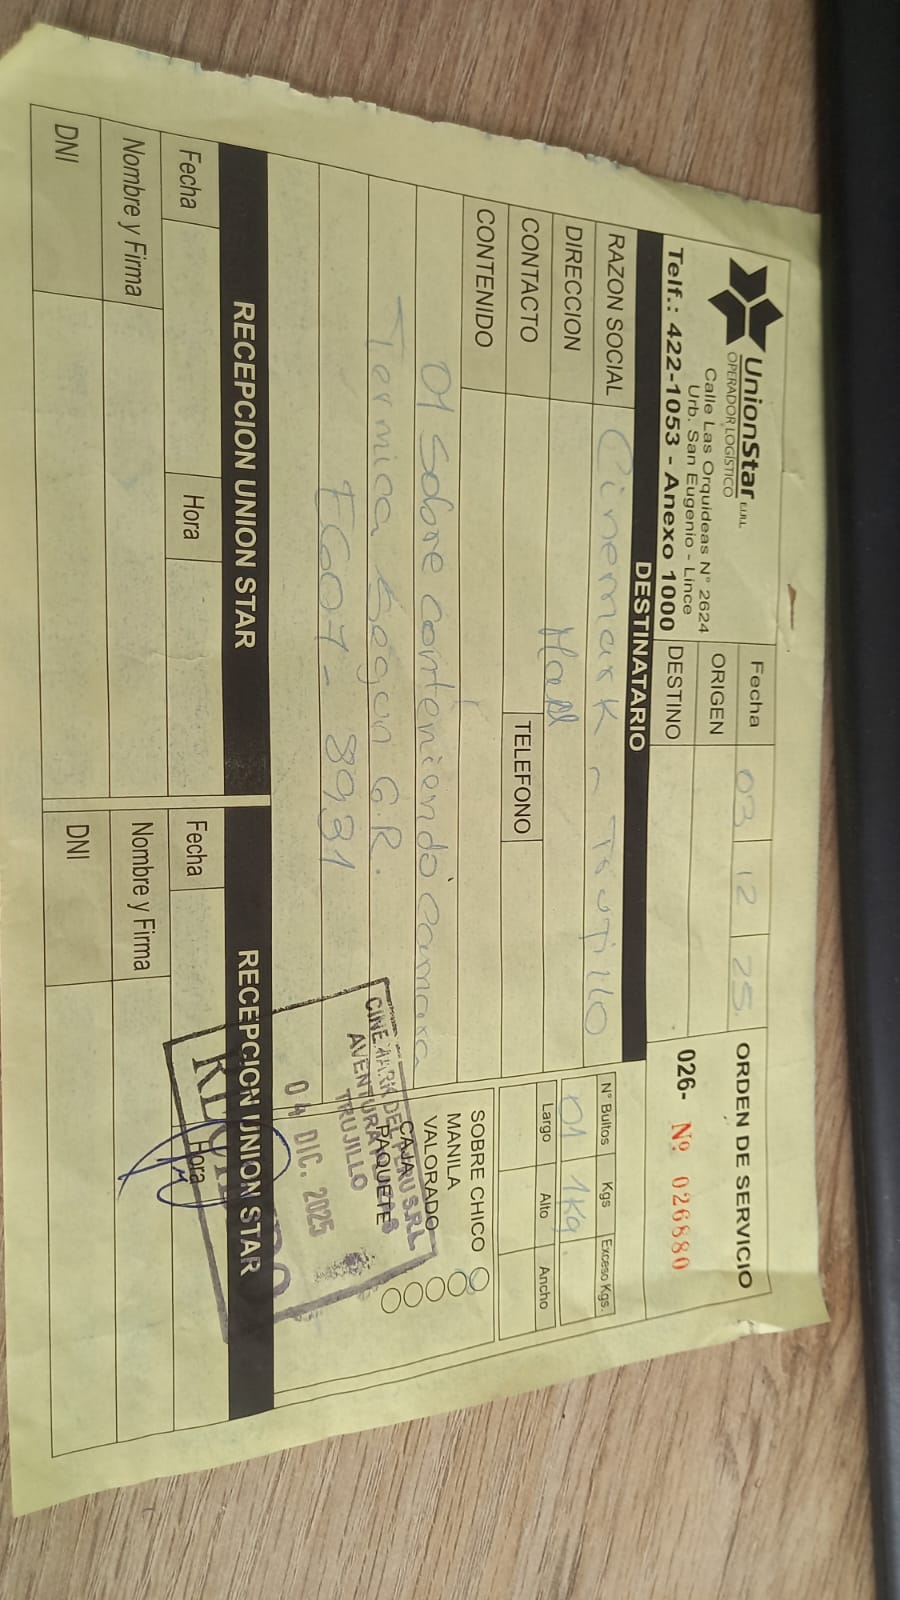 UnionStar E.I.R.L.
OPERADOR LOGÍSTICO
Calle Las Orquideas N° 2624
Urb. San Eugenio - Lince
Telf.: 422-1053 - Anexo 1000
Fecha 03 12 25
ORIGEN
DESTINO
ORDEN DE SERVICIO
026- Nº 026880
DESTINATARIO
RAZON SOCIAL Cinemark - Trujillo
DIRECCION Mall
CONTACTO
TELEFONO
CONTENIDO
01 Sobre conteniendo Camara
Termica Segun G.R.
EG07- 8931
N° Bultos Kgs Exceso Kgs.
01 1Kg.
Largo Alto Ancho
SOBRE CHICO
MANILA
VALORADO
CAJA
PAQUETE
CINEMARK DEL PERU S.R.L.
AVENTURA PLAZA
TRUJILLO
04 DIC. 2025
RECIBIDO
RECEPCION UNION STAR
Fecha Hora
Nombre y Firma
DNI
RECEPCION UNION STAR
Fecha Hora
Nombre y Firma
DNI